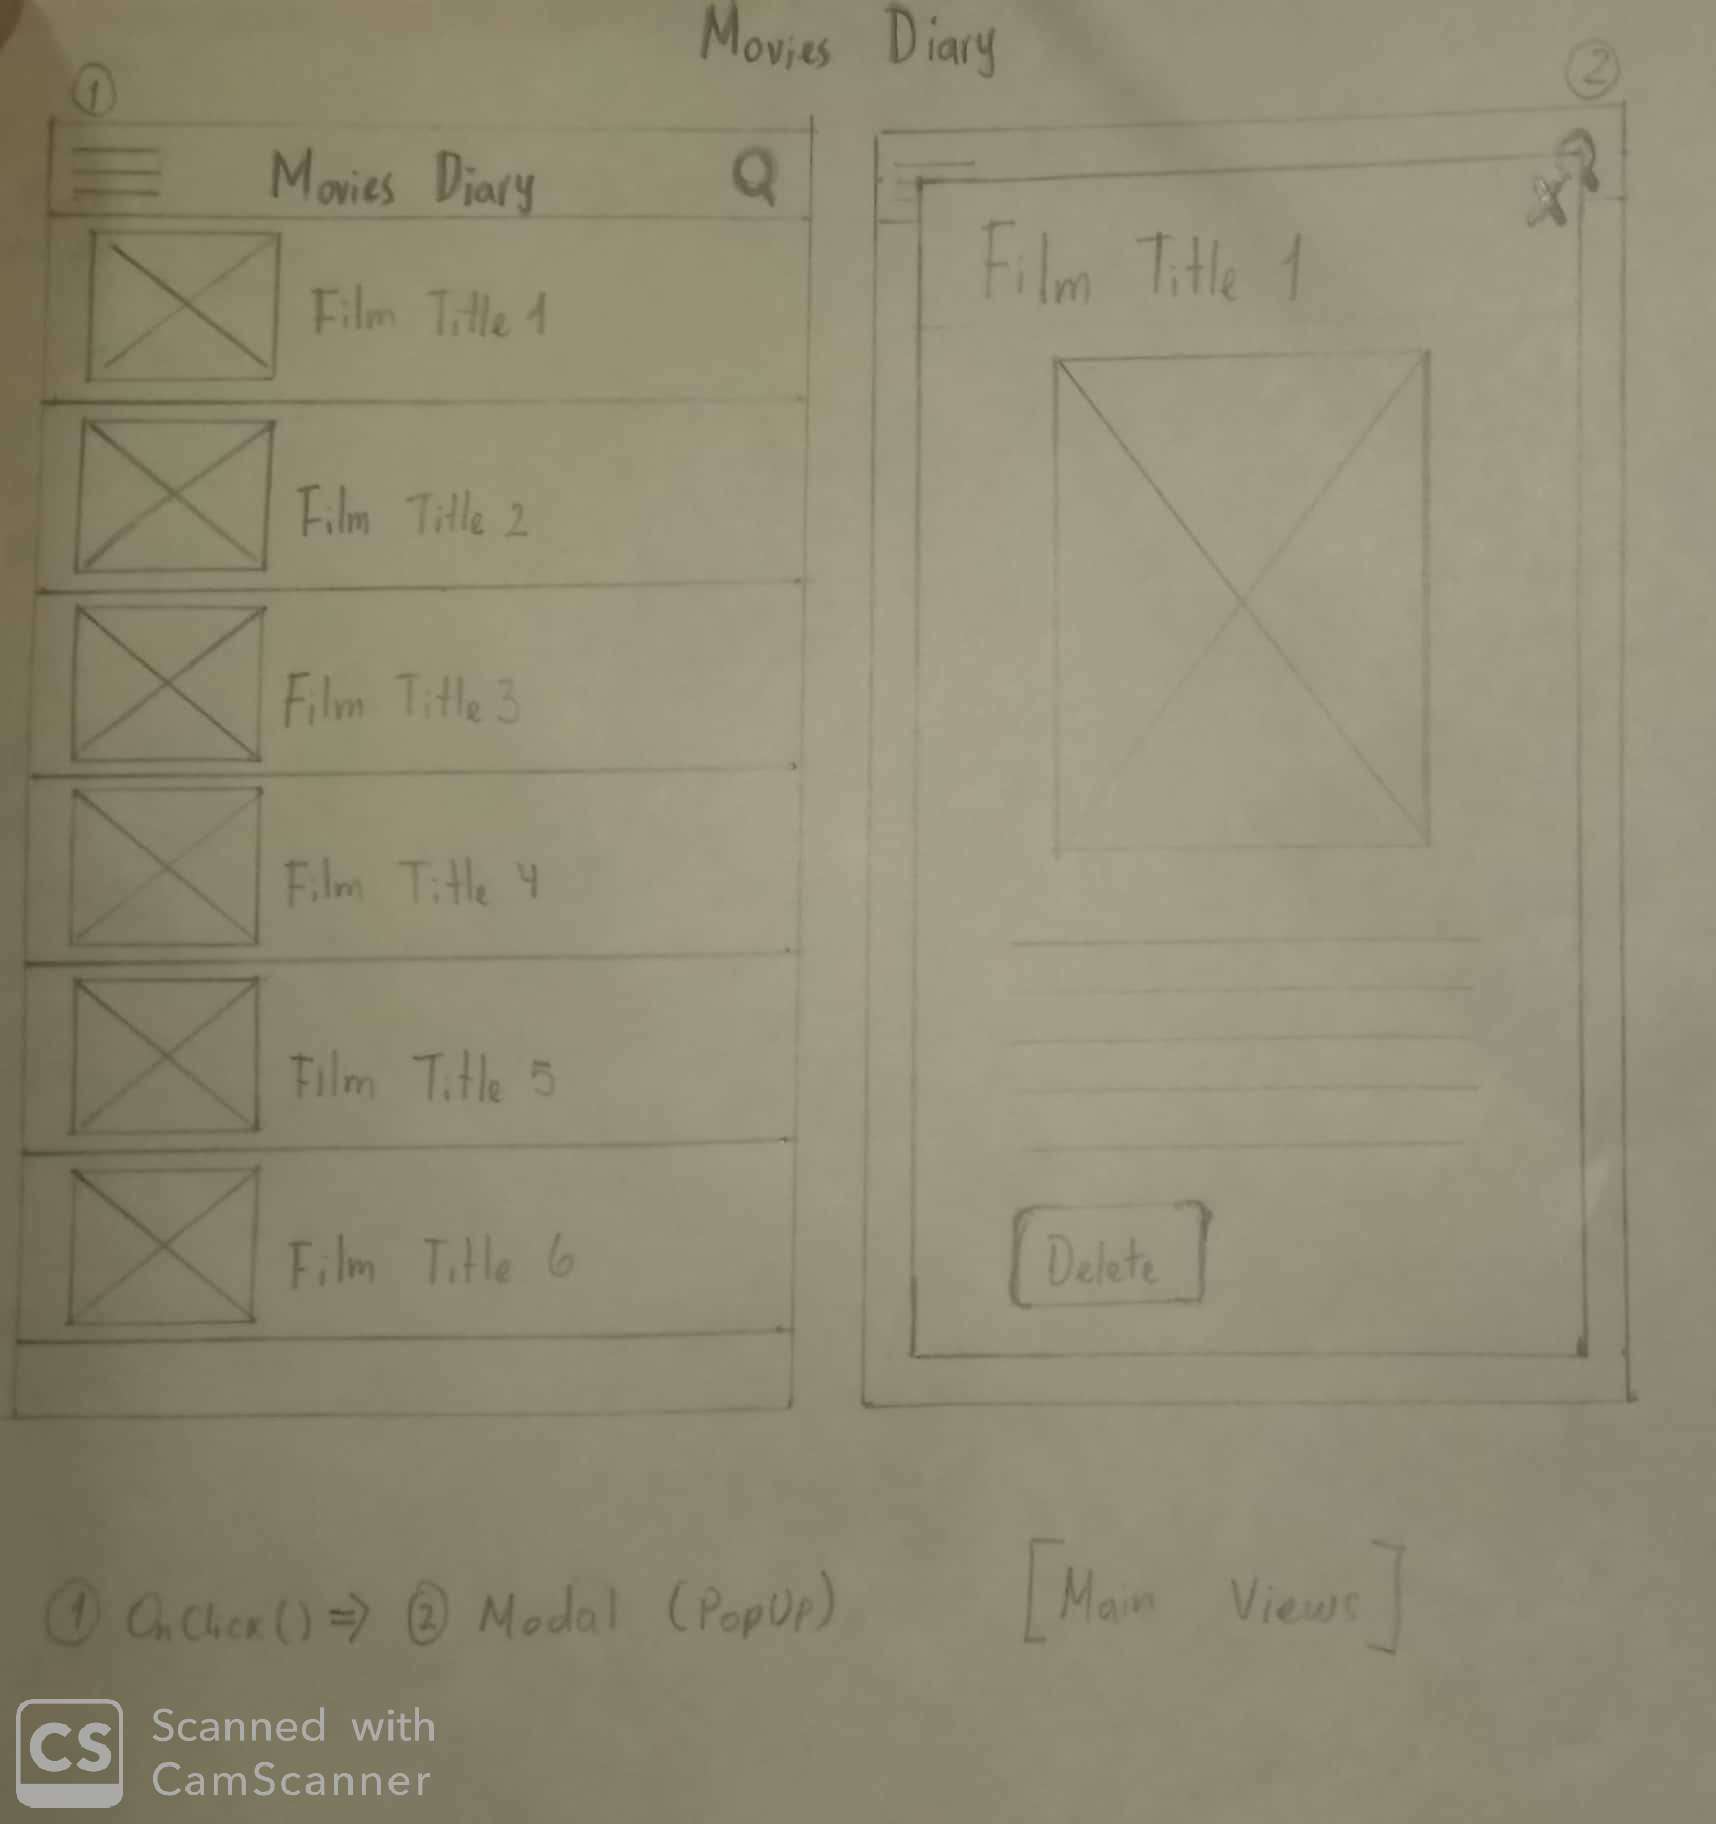 Movies Diary
1
Movies Diary
Film Title 1
Film Title 2
Film Title 3
Film Title 4
Film Title 5
Film Title 6
2
X
Film Title 1
Delete
1 OnClick() => 2 Modal (PopUp)
[Main Views]
CS Scanned with
CamScanner